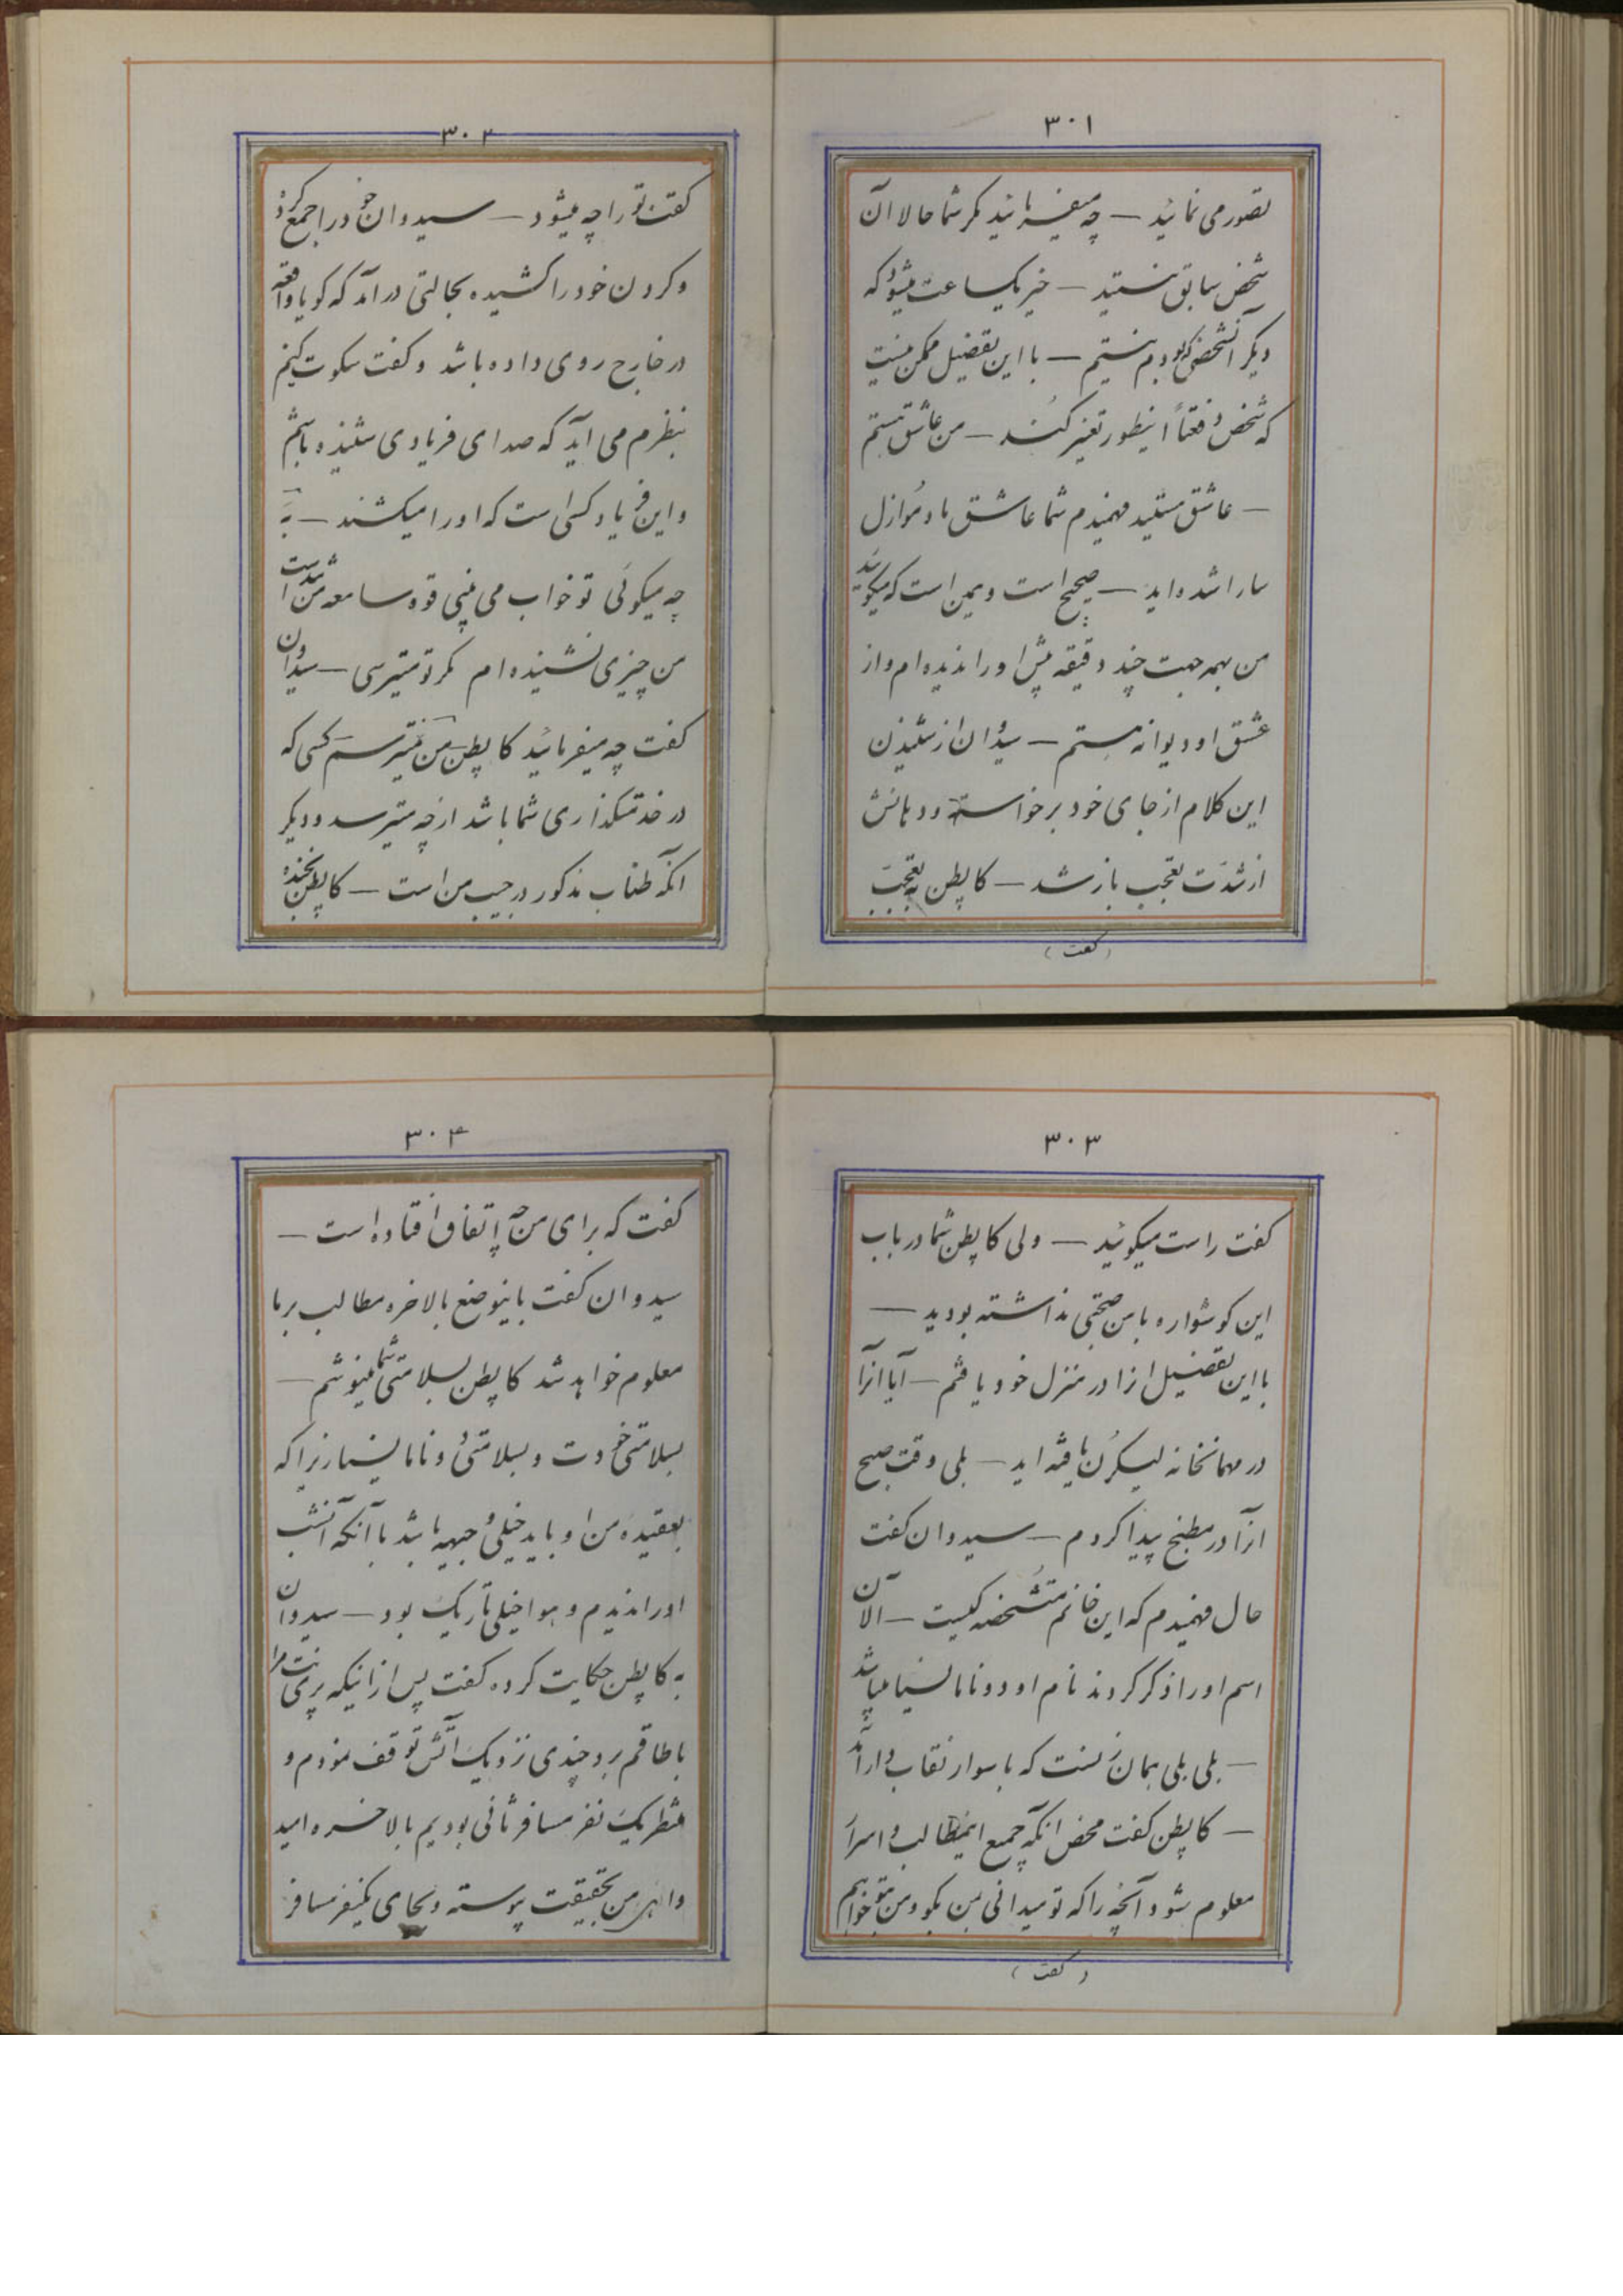 ۳۰۱
تصور می نمائید — چه میفرمائید مگر شما حالا آن
شخص سابق نیستید — خیر یکساعت میشود که
دیگر آنشخص که بودم نیستم — با این تفضیل ممکن نیست
که شخص دفعتاً اینطور تغییر کند — من عاشق هستم
— عاشق هستید فهمیدم شما عاشق مادموازل
سارا شده اید — صحیح است و همین است که میگوئید
من بهمه جهت چند دقیقه پیش او را ندیده ام و از
عشق او دیوانه هستم — سیدوان از شنیدن
این کلام از جای خود برخواسته و دهانش
از شدت تعجب باز شد — کاپطن به تعجب
(گفت)
۳۰۲
گفت تو را چه میشود — سیدوان خود را جمع کرده
و گردن خود را کشیده بحالتی درآمد که گویا واقعه
در خارج روی داده باشد و گفت سکوت کنیم
بنظرم می آید که صدای فریادی شنیده باشم
و این فریاد کسی است که او را میکشند — به
چه میگوئی تو خواب می بینی قوه سامعه من است
من چیزی نشنیده ام مگر تو میترسی — سیدوان
گفت چه میفرمائید کاپطن من نمیترسم کسی که
در خدمتگذاری شما باشد از چه میترسد و دیگر
آنکه طناب مذکور در جیب من است — کاپطن بخنده
۳۰۳
گفت راست میگوئید — ولی کاپطن شما در باب
این گوشواره با من صحبتی نداشته بودید —
با این تفضیل انرا در منزل خود یافتم — آیا آنرا
در مهمانخانه لیسکرن یافته اید — بلی وقت صبح
انرا در مطبخ پیدا کردم — سیدوان گفت
حال فهمیدم که این خانم متشخصه کیست — الان
اسم او را ذکر کردند نام او دونا مالنسیا میباشد
— بلی بلی همان زنست که با سوار نقابدار آمد
— کاپطن گفت محض آنکه جمیع اینمطالب و اسرار
معلوم شود آنچه را که تو میدانی بمن بگو و من بتو خواهم
(گفت)
۳۰۴
گفت که برای من چه اتفاق افتاده است —
سیدوان گفت باینوضع بالاخره مطالب بر ما
معلوم خواهد شد کاپطن بسلامتی شما مینوشم —
بسلامتی خودت و بسلامتی دونا مالنسیا زیرا که
بعقیده من او باید خیلی وجیهه باشد با آنکه آنشب
او را ندیدم و هوا خیلی تاریک بود — سیدوان
به کاپطن حکایت کرده گفت پس از اینکه پری نت مرا
باطاقم برد چندی نزدیک آتش توقف نمودم و
منتظر یک نفر مسافر ثانی بودیم بالاخره امید
من بحقیقت پیوسته و بجای یکنفر مسافر